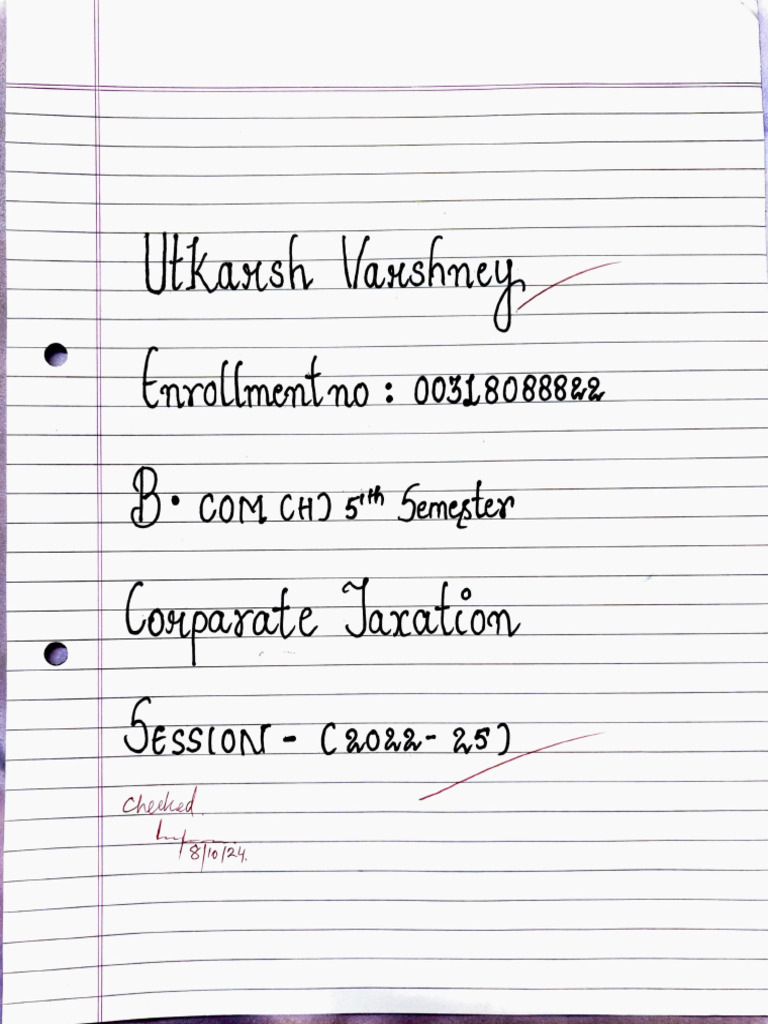 Utkarsh Varshney
Enrollment no : 00318088822
B. COM (H) 5th Semester
Corparate Taxation
SESSION - (2022-25)
Checked.
8/10/24.